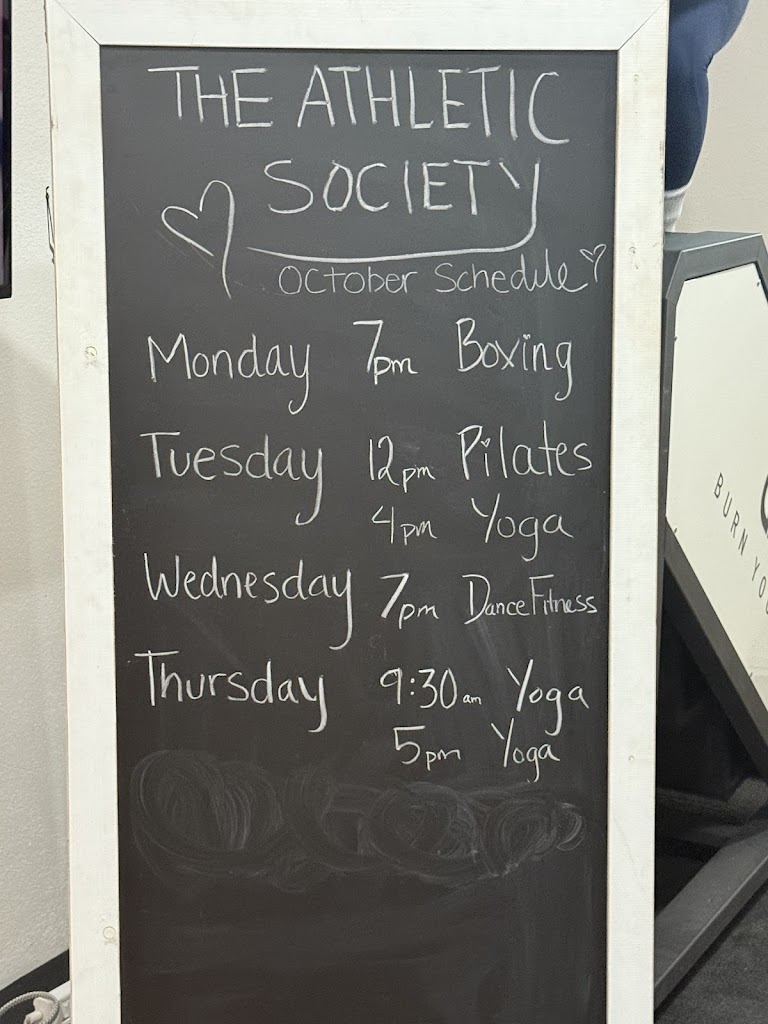 THE ATHLETIC
SOCIETY
October Schedule
Monday 7pm Boxing
Tuesday 12pm Pilates
4pm Yoga
Wednesday 7pm Dance Fitness
Thursday 9:30am Yoga
5pm Yoga
BURN YO